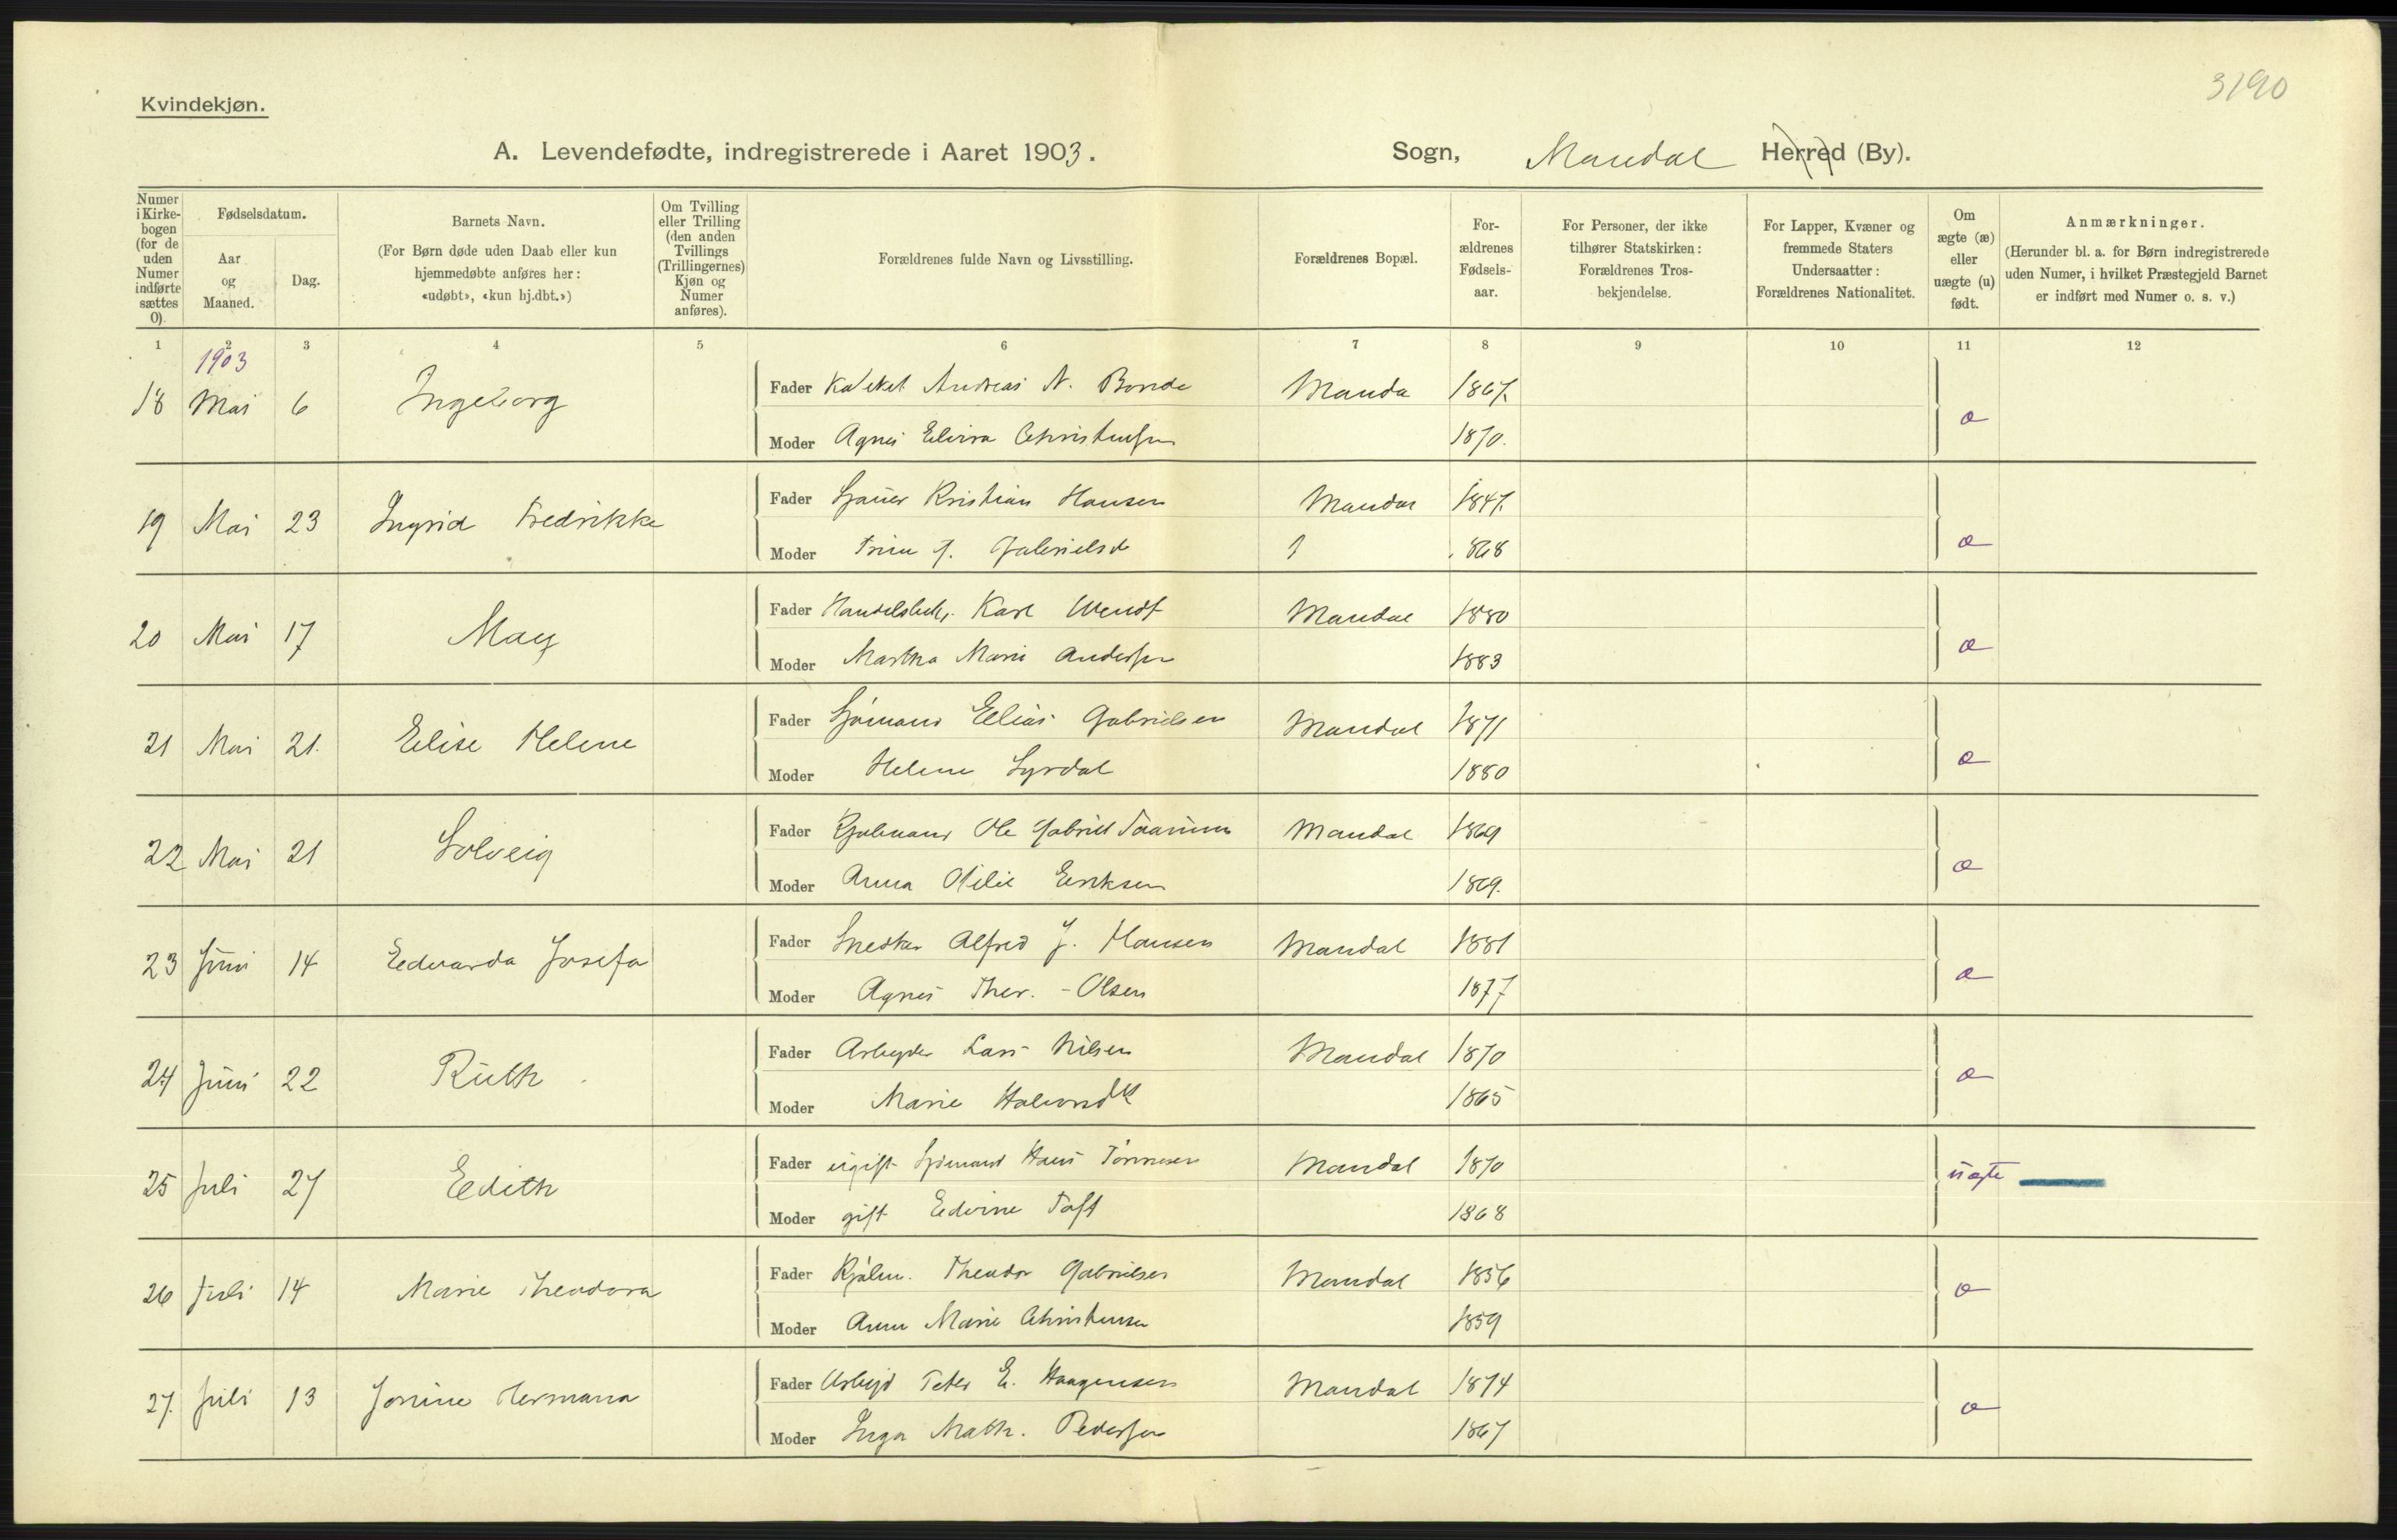 3190
Kvindekjøn.
A. Levendefødte, indregistrerede i Aaret 1903. Sogn, Mandal Herred (By).
Numer i Kirkebogen (for de uden Numer indførte sættes 0).
Fødselsdatum.
Aar og Maaned.
Dag.
Barnets Navn.
(For Børn døde uden Daab eller kun hjemmedøbte anføres her: «udøbt», «kun hj.dbt.»)
Om Tvilling eller Trilling (den anden Tvillings (Trillingernes) Kjøn og Numer anføres).
Forældrenes fulde Navn og Livsstilling.
Forældrenes Bopæl.
Forældrenes Fødselsaar.
For Personer, der ikke tilhører Statskirken: Forældrenes Trosbekjendelse.
For Lapper, Kvæner og fremmede Staters Undersaatter: Forældrenes Nationalitet.
Om ægte (æ) eller uægte (u) født.
Anmærkninger.
(Herunder bl. a. for Børn indregistrerede uden Numer, i hvilket Præstegjeld Barnet er indført med Numer o. s. v.)
1 2 3 4 5 6 7 8 9 10 11 12
1903
18 Mai 6 Ingeborg Fader Andreas N. Bonde Manda 1867. æ
Moder Agnes Elvira Christensen 1870.
19 Mai 23 Ingrid Fredrikke Fader Kristian Hansen Mandal 1847. æ
Moder Gabrielsd 868
20 Mai 17 May Fader Karl Wendt Mandal 1880 æ
Moder Martha Marie Andersen 1883
21 Mai 21. Elise Helene Fader Sjömand Elias Gabrielsen Mandal 1871 æ
Moder Helene Syrdal 1880
22 Mai 21 Solveig Fader Ole Gabriel Mandal 1869 æ
Moder Anna Otilie Eriksen 1869.
23 Juni 14 Edvarda Josefa Fader Snedker Alfred J. Hansen Mandal 1881 æ
Moder Agnes Ther. - Olsen 1877
24 Juni 22 Ruth Fader Arbeyder Lars Nilsen Mandal 1870 æ
Moder Marie 1865
25 Juli 27 Edith Fader ugift Sjömand Hans Tönnesen Mandal 1870 uægte
Moder gift Edvine Toft 1868
26 Juli 14 Marie Theodora Fader Theodor Gabrielsen Mandal 1856 æ
Moder Anne Marie Christensen 1859
27. Juli 13 Jonine Hermana Fader Arbeyd Peter E. Haagensen Mandal 1874 æ
Moder Inga Math. Pedersen 1867